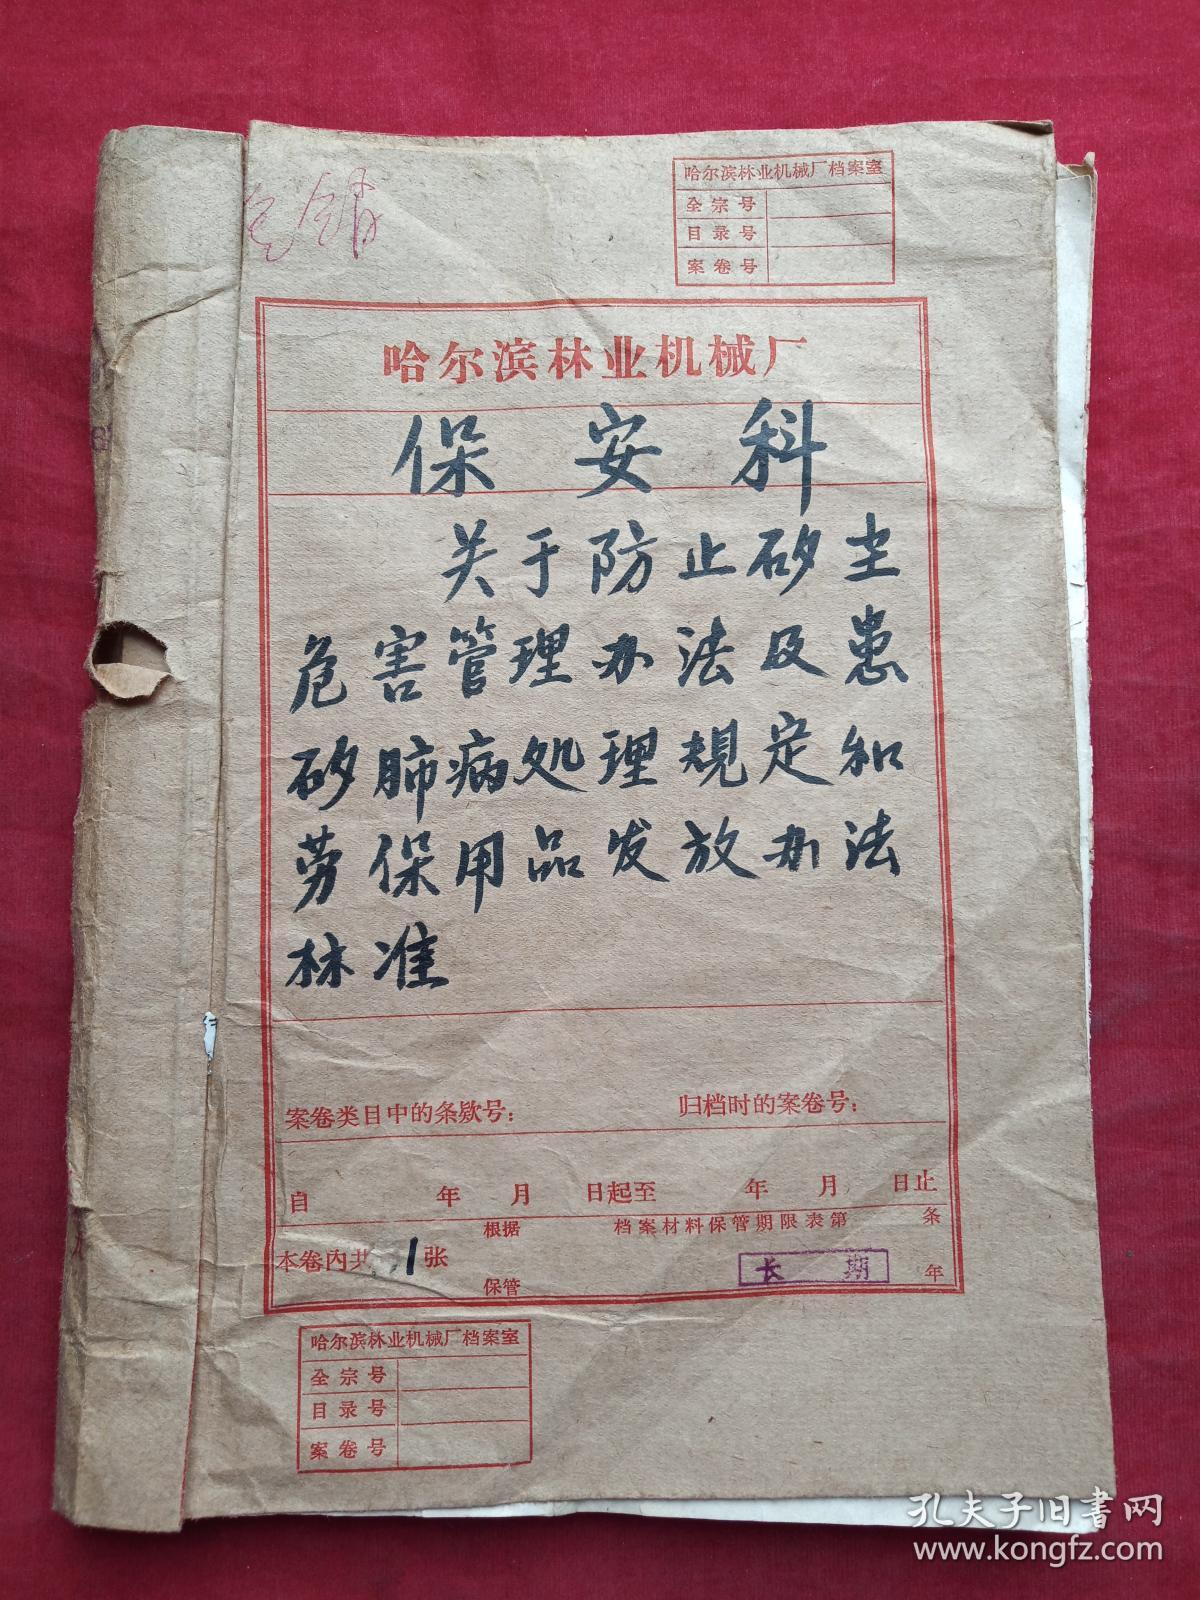 哈尔滨林业机械厂档案室
全宗号
目录号
案卷号
哈尔滨林业机械厂
保安科
关于防止矽尘
危害管理办法及患
矽肺病处理规定和
劳保用品发放办法
标准
案卷类目中的条款号：
归档时的案卷号：
自 年 月 日起至 年 月 日止
根据 档案材料保管期限表第 条
本卷内共 1 张
保管 长期 年
哈尔滨林业机械厂档案室
全宗号
目录号
案卷号
孔夫子旧书网
www.kongfz.com